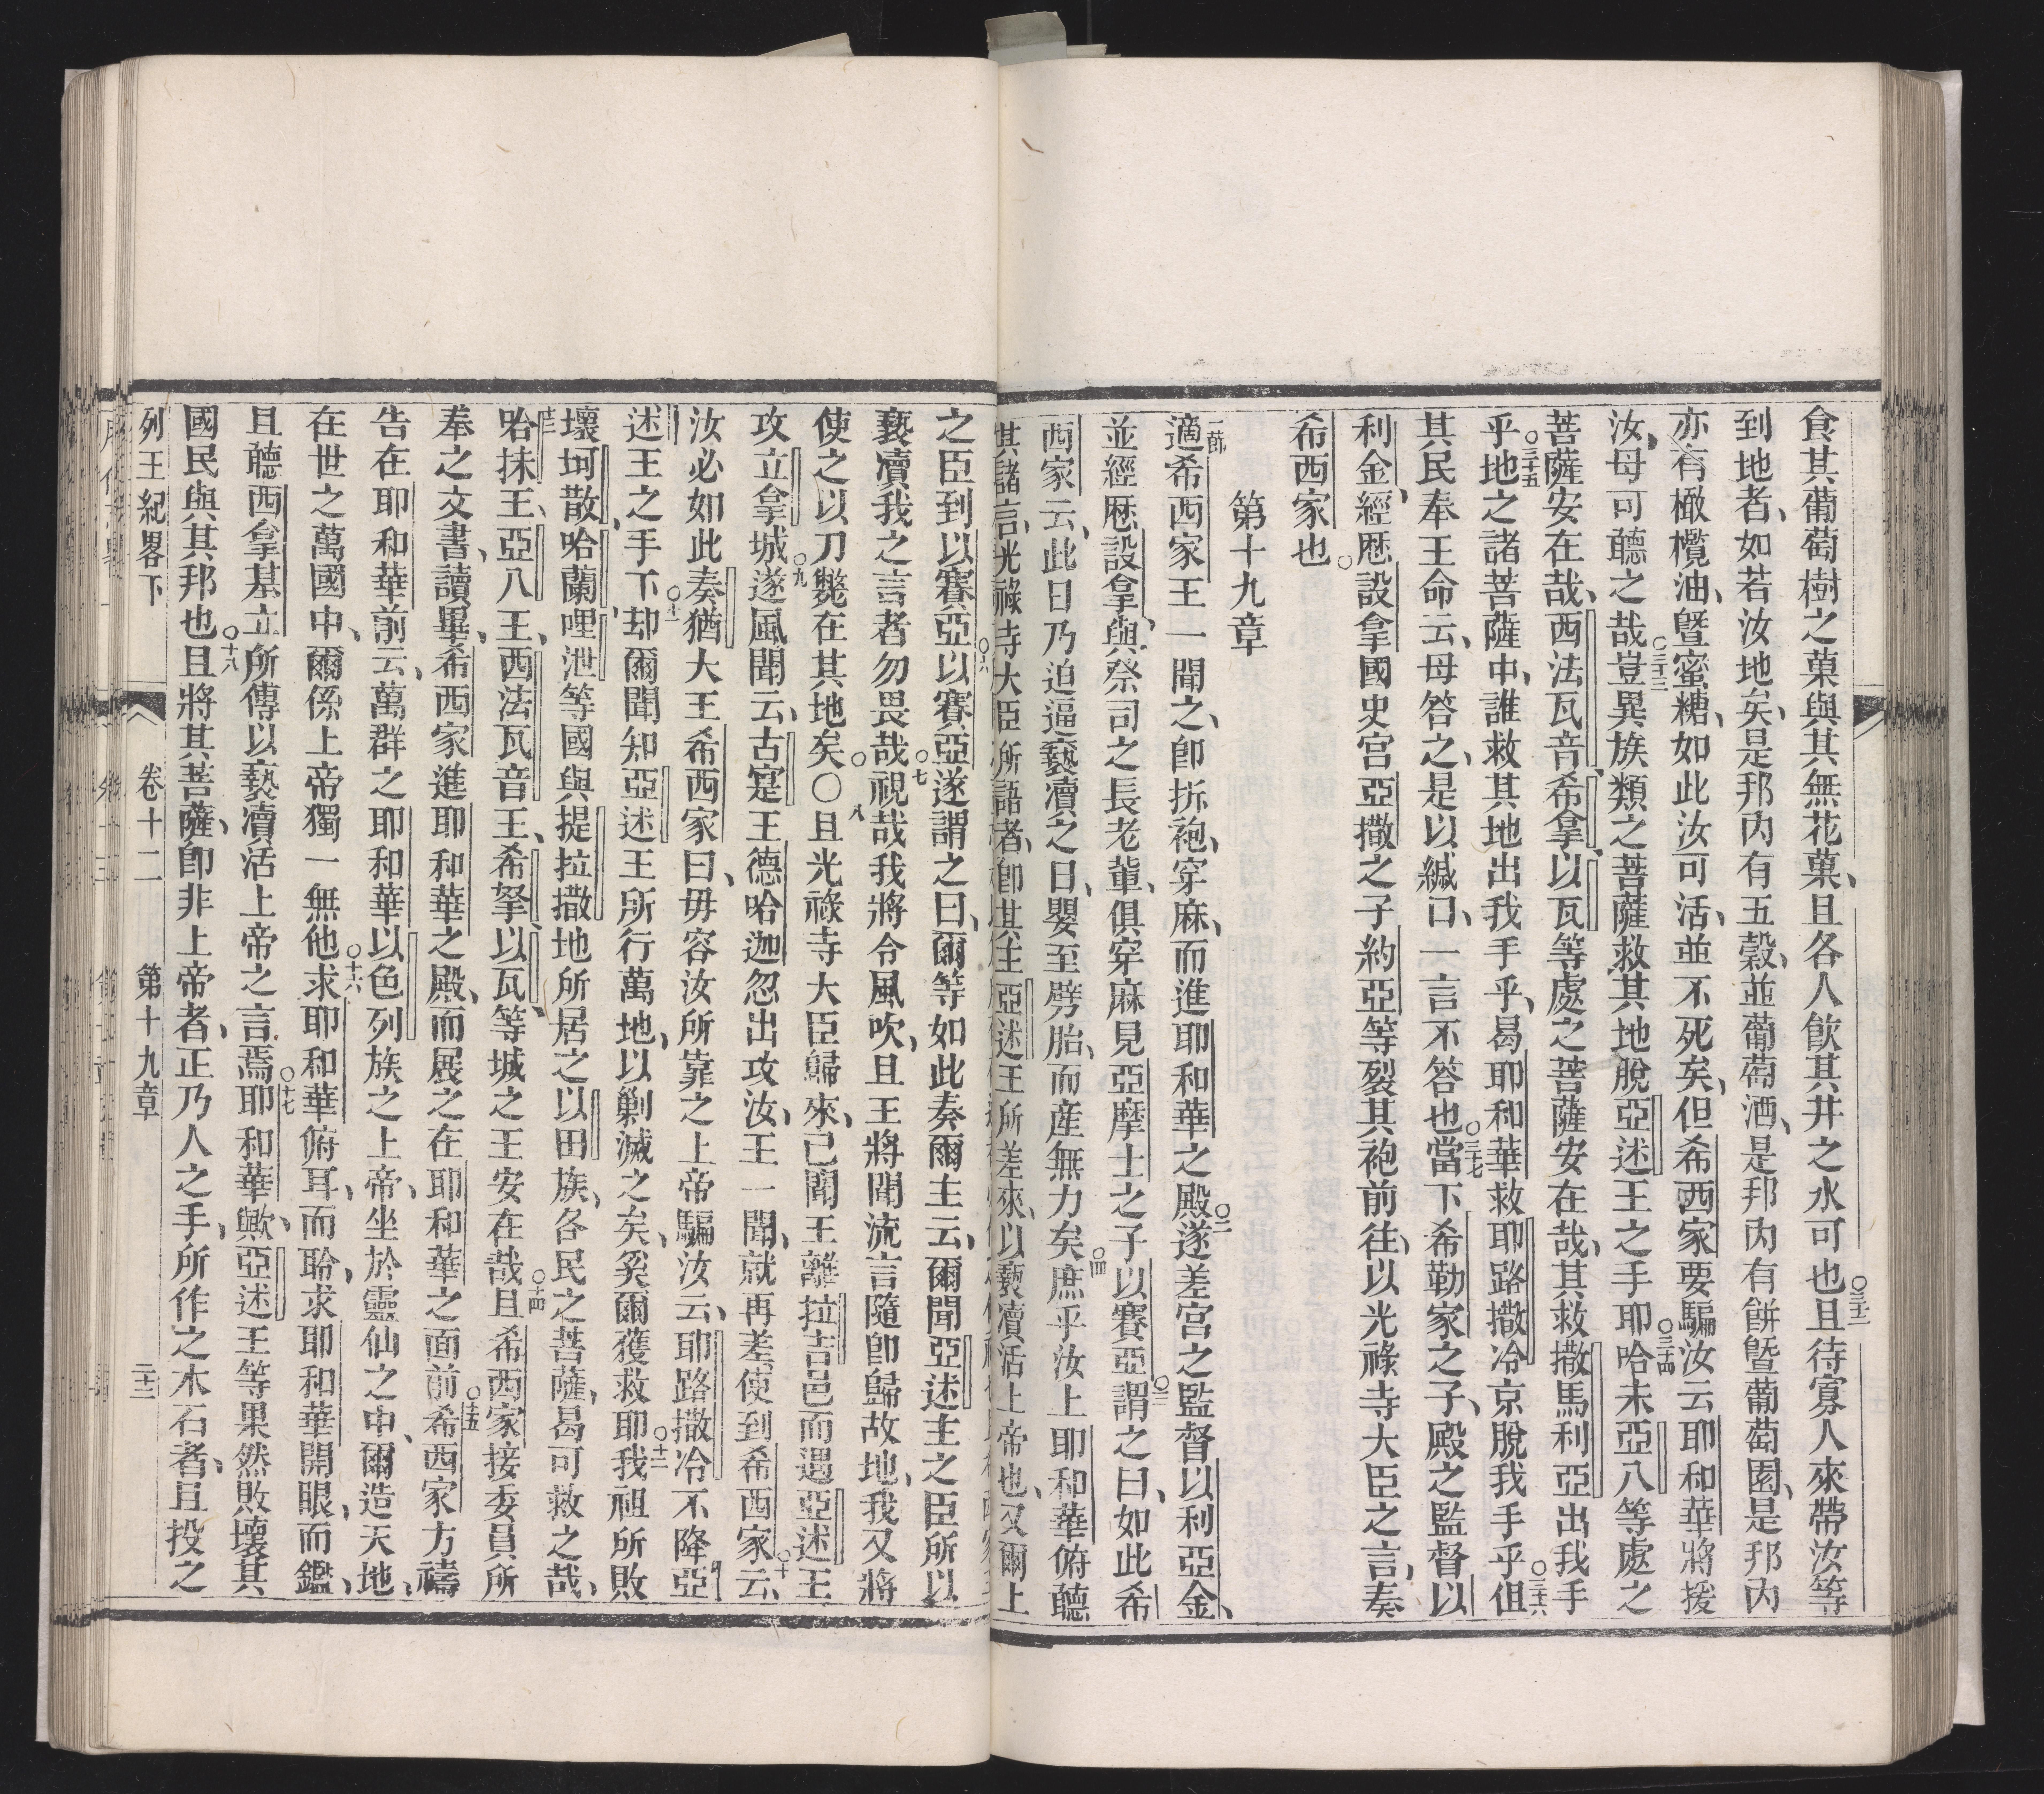 食其葡萄樹之菓與其無花菓、且各人飲其井之水可也○三十二且待寡人來帶汝等
到地者、如若汝地矣、是邦內有五穀、並葡萄酒、是邦內有餅曁葡萄園、是邦內
亦有橄欖油、曁蜜糖、如此汝可活、並不死矣、但希西家要騙汝云耶和華將援
汝、毋可聽之哉○三十三豈異族類之菩薩救其地脫亞述王之手耶○三十四哈未亞八等處之
菩薩安在哉、西法瓦音、希拿、以瓦等處之菩薩安在哉、其救撒馬利亞出我手
乎○三十五地之諸菩薩中、誰救其地出我手乎、曷耶和華救耶路撒冷京脫我手乎○三十六但
其民奉王命云、毋答之、是以緘口、一言不答也○三十七當下希勒家之子、殿之監督以
利金、經歷○設拿國史宮亞撒之子約亞等裂其袍前往、以光祿寺大臣之言、奏
希西家也
第十九章
一節適希西家王一聞之、卽拆袍、穿麻、而進耶和華之殿○二遂差宮之監督以利亞金、
並經歷設拿、與祭司之長老輩、俱穿麻見亞摩士之子以賽亞○三謂之曰、如此希
西家云、此日乃迫逼褻瀆之日、嬰至劈胎、而產無力矣○四庶乎汝上耶和華俯聽
其諸言、光祿寺大臣所語者、卽其主亞述王所差來、以褻瀆活上帝也、又爾上
之臣到以賽亞○六以賽亞遂謂之曰、爾等如此奏爾主云、爾聞亞述主之臣所以
褻瀆我之言者勿畏哉○七視哉我將令風吹、且王將聞流言隨卽歸故地、我又將
使之以刀斃在其地矣○八○且光祿寺大臣歸來、已聞王離拉吉邑而遇亞述王
攻立拿城○九遂風聞云、古寔王德哈迦忽出攻汝、王一聞、就再差使到希西家云、○十
汝必如此奏猶大王希西家曰、毋容汝所靠之上帝騙汝云、耶路撒冷不降亞
述王之手下○十一却爾聞知亞述王所行萬地、以剿滅之矣、奚爾獲救耶○十二我祖所敗
壞坷散、哈蘭、哩泄等國與提拉撒地所居之以田族、各民之菩薩、曷可救之哉、
十三哈抹王、亞八王、西法瓦音王、希拏、以瓦、等城之王安在哉○十四且希西家接委員所
奉之文書、讀畢、希西家進耶和華之殿、而展之在耶和華之面前○十五希西家方禱
告在耶和華前云、萬群之耶和華以色列族之上帝、坐於靈仙之中、爾造天地、
在世之萬國中、爾係上帝獨一無他○十六求耶和華俯耳、而聆、求耶和華開眼、而鑑、
且聽西拿基立所傳以褻瀆活上帝之言焉○十七耶和華歟、亞述王等果然敗壞其
國民與其邦也○十八且將其菩薩、卽非上帝者、正乃人之手、所作之木石者、且投之
列王紀畧下　卷十二　第十九章　三十三